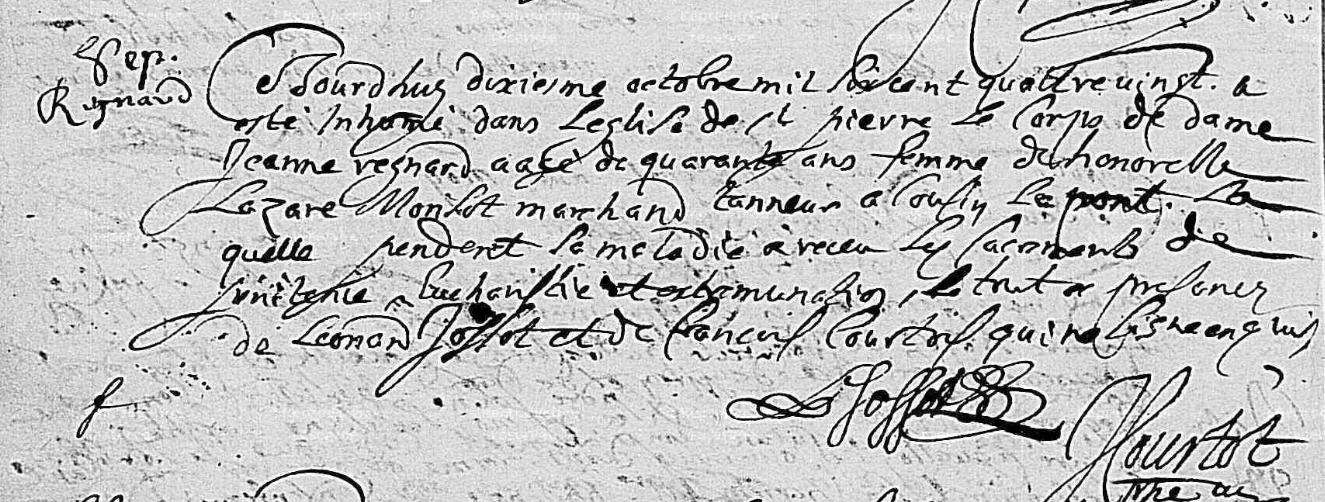 Sep.
Regnard
Ejourdhuy dixiesme octobre mil six cent quattre uingt. a
esté Inhumé dans Leglise de st pierre Le Corps de dame
Jeanne regnard aagé de quarante ans femme de honorelle
Lazare Monsot marchand tanneur a Cousin Le pont. La
quelle pendent sa maladie a receu Les sacrements de
penitensie, Eucharistie et extremunation, Le tout es presances
de Leonard Jossot et de francois Courtois qui ne signe enquis
L Jossot
Courtot